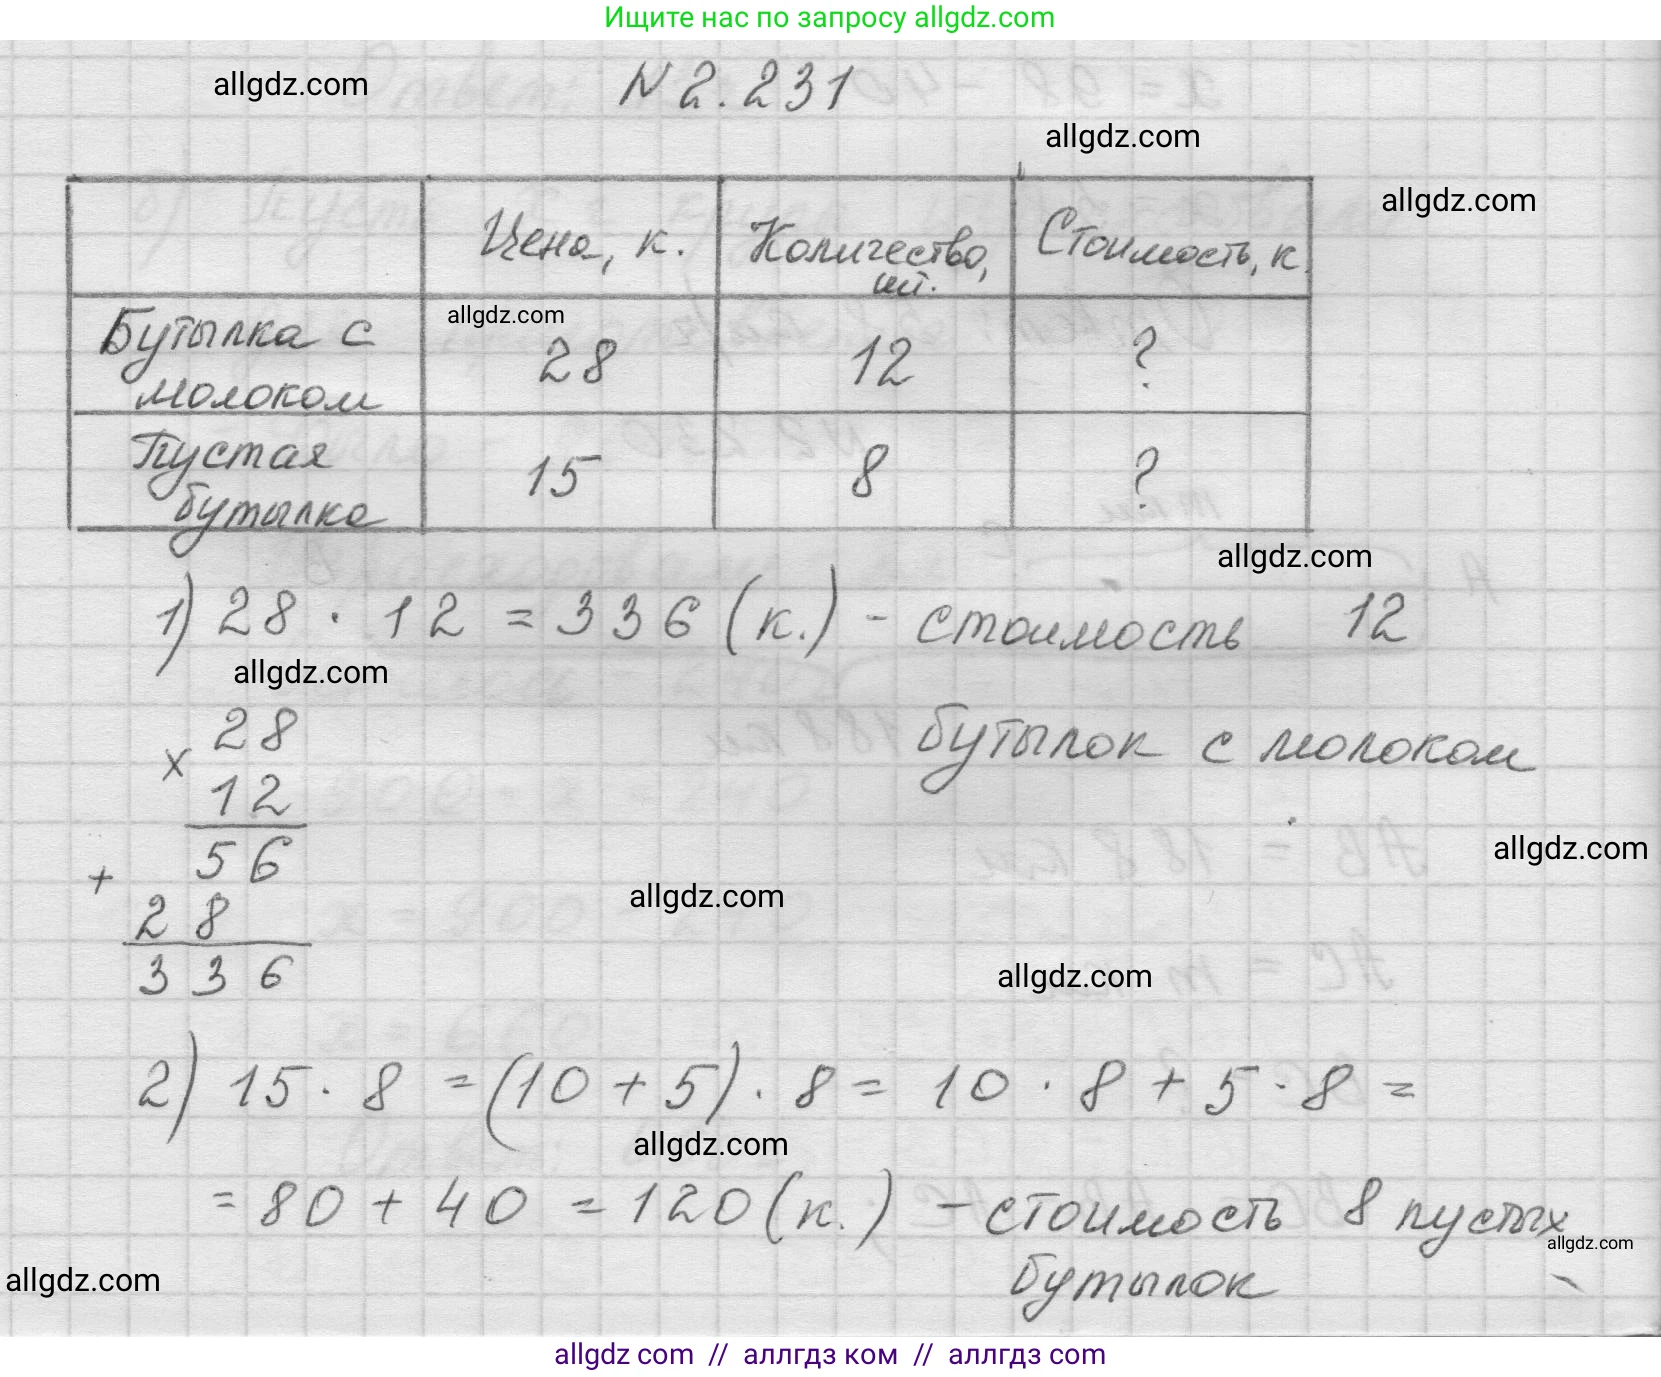 Ищите нас по запросу allgdz.com
allgdz.com
N 2.231
allgdz.com
allgdz.com
Цена, к.
Количество, шт.
Стоимость, к.
Бутылка с
молоком
allgdz.com
28
12
?
Пустая
бутылка
15
8
?
allgdz.com
1) 28 · 12 = 336 (к.) - стоимость 12
allgdz.com
бутылок с молоком
28
×
12
56
+
28
336
allgdz.com
allgdz.com
allgdz.com
2) 15 · 8 = (10 + 5) · 8 = 10 · 8 + 5 · 8 =
allgdz.com
= 80 + 40 = 120 (к.) - стоимость 8 пустых
allgdz.com
бутылок
allgdz.com
allgdz com // аллгдз ком // аллгдз com